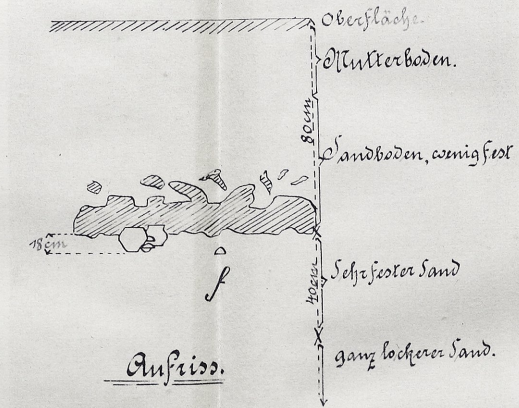 Oberfläche.
Mutterboden.
80cm
Sandboden, wenig fest
18cm
40cm
Sehr fester Sand
f
ganz lockerer Sand.
Aufriss.